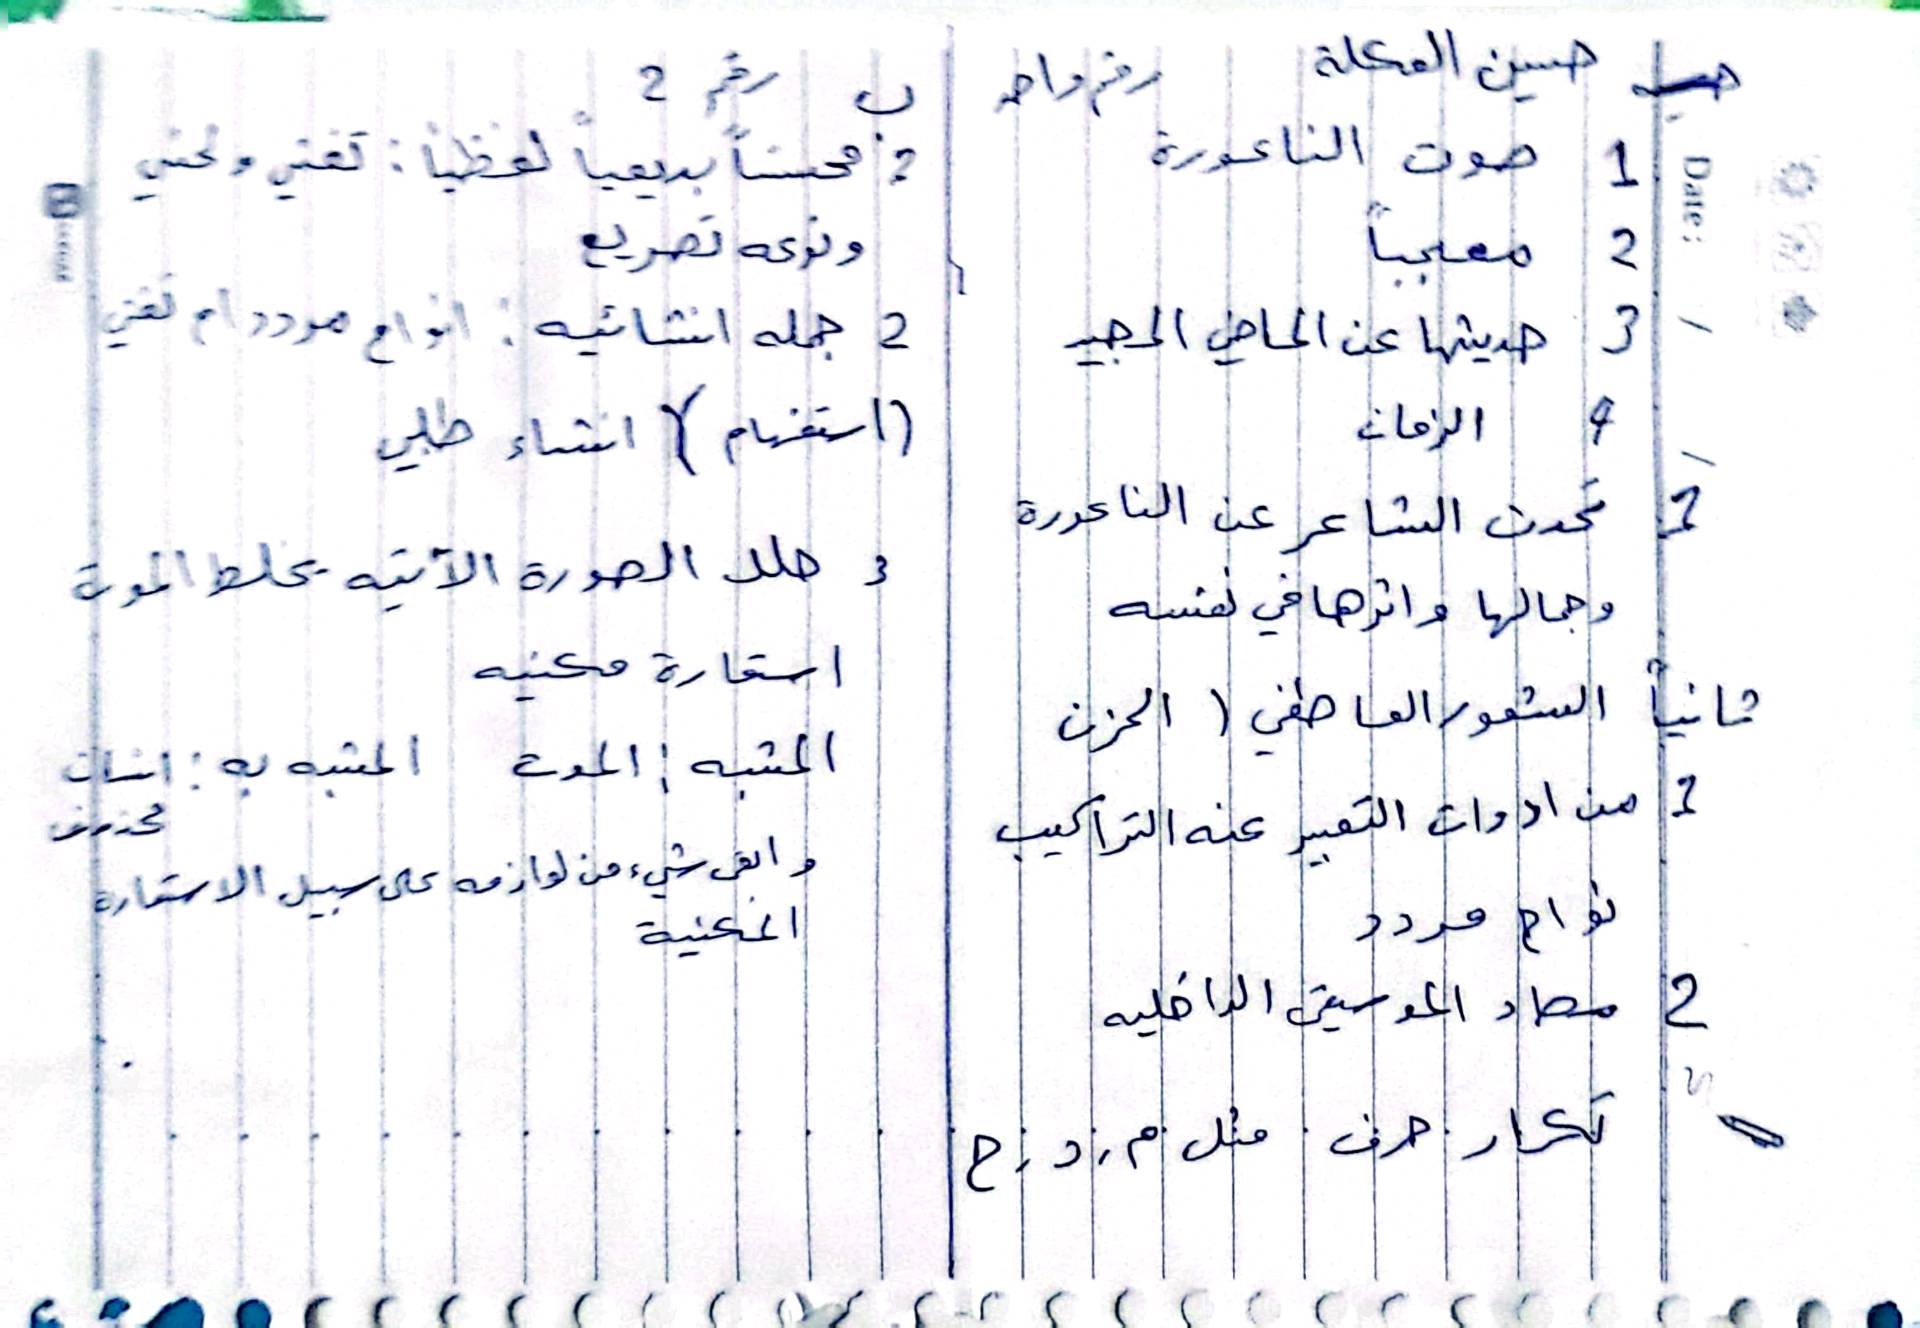 حسين العكلة رقم واحد
1 صوت الناعورة
2 معجباً
3 حديثها عن الماضي المجيد
4 الزمان
1 تحدث الشاعر عن الناعورة
وجمالها واثرها في نفسه
ثانياً الشعور العاطفي ( الحزن
1 من ادوات التعبير عنه التراكيب
نواح مردد
2 مصاد الموسيقى الداخليه
تكرار حرف مثل م, د, ح
Date: / /
ب رقم 2
2 محسناً بديعياً لفظياً: تغني و تحني
ونوعه تصريع
2 جمله انشائيه: انواح مردد ام تغني
(استفهام) انشاء طلبي
3 حلل الصورة الآتيه يخلط الموت
استعارة مكنيه
المشبه: الموت المشبه به: انسان
محذوف
وابقى شيء من لوازمه على سبيل الاستعارة
المكنية